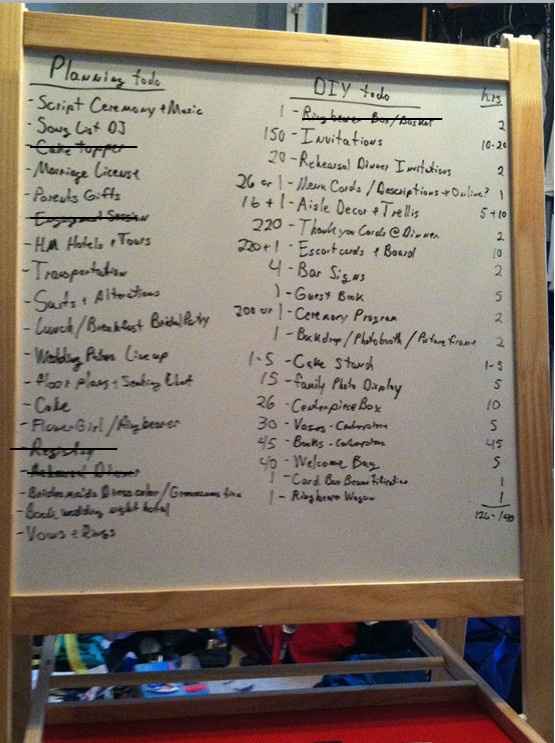 Planning todo
- Script Ceremony + Music
- Song List DJ
- Cake topper
- Marriage License
- Parents Gifts
- Engagement Session
- HM Hotels + Tours
- Transportation
- Suits + Alterations
- Lunch/Breakfast Bridal Party
- Wedding Line up
- floor plans + Seating Chart
- Cake
- Flower Girl/Ringbearer
- Registry
- Rehearsal Dinner
- Bridesmaids Dress color/Groomsmen ties
- Book wedding night hotel
- Vows + Rings
DIY todo hrs
1 - Ringbearer Box/Basket 2
150 - Invitations 10-20
20 - Rehearsal Dinner Invitations 2
26 or 1 - Menu Cards / Descriptions + Online? 1
16 + 1 - Aisle Decor + Trellis 5+10
220 - Thank you Cards @ Dinner 2
220+1 - Escort cards + Board 10
4 - Bar Signs 2
1 - Guest Book 5
200 or 1 - Ceremony Program 2
1 - Backdrop/Photobooth/Picture frame 2
1-5 - Cake Stand 1-5
15 - family Photo Display 5
26 - Centerpiece Box 10
30 - Vases - Centerpiece 5
45 - Books - Centerpiece 45
40 - Welcome Bag 5
1 - Card Box Beautification 1
1 - Ringbearer Wagon 1